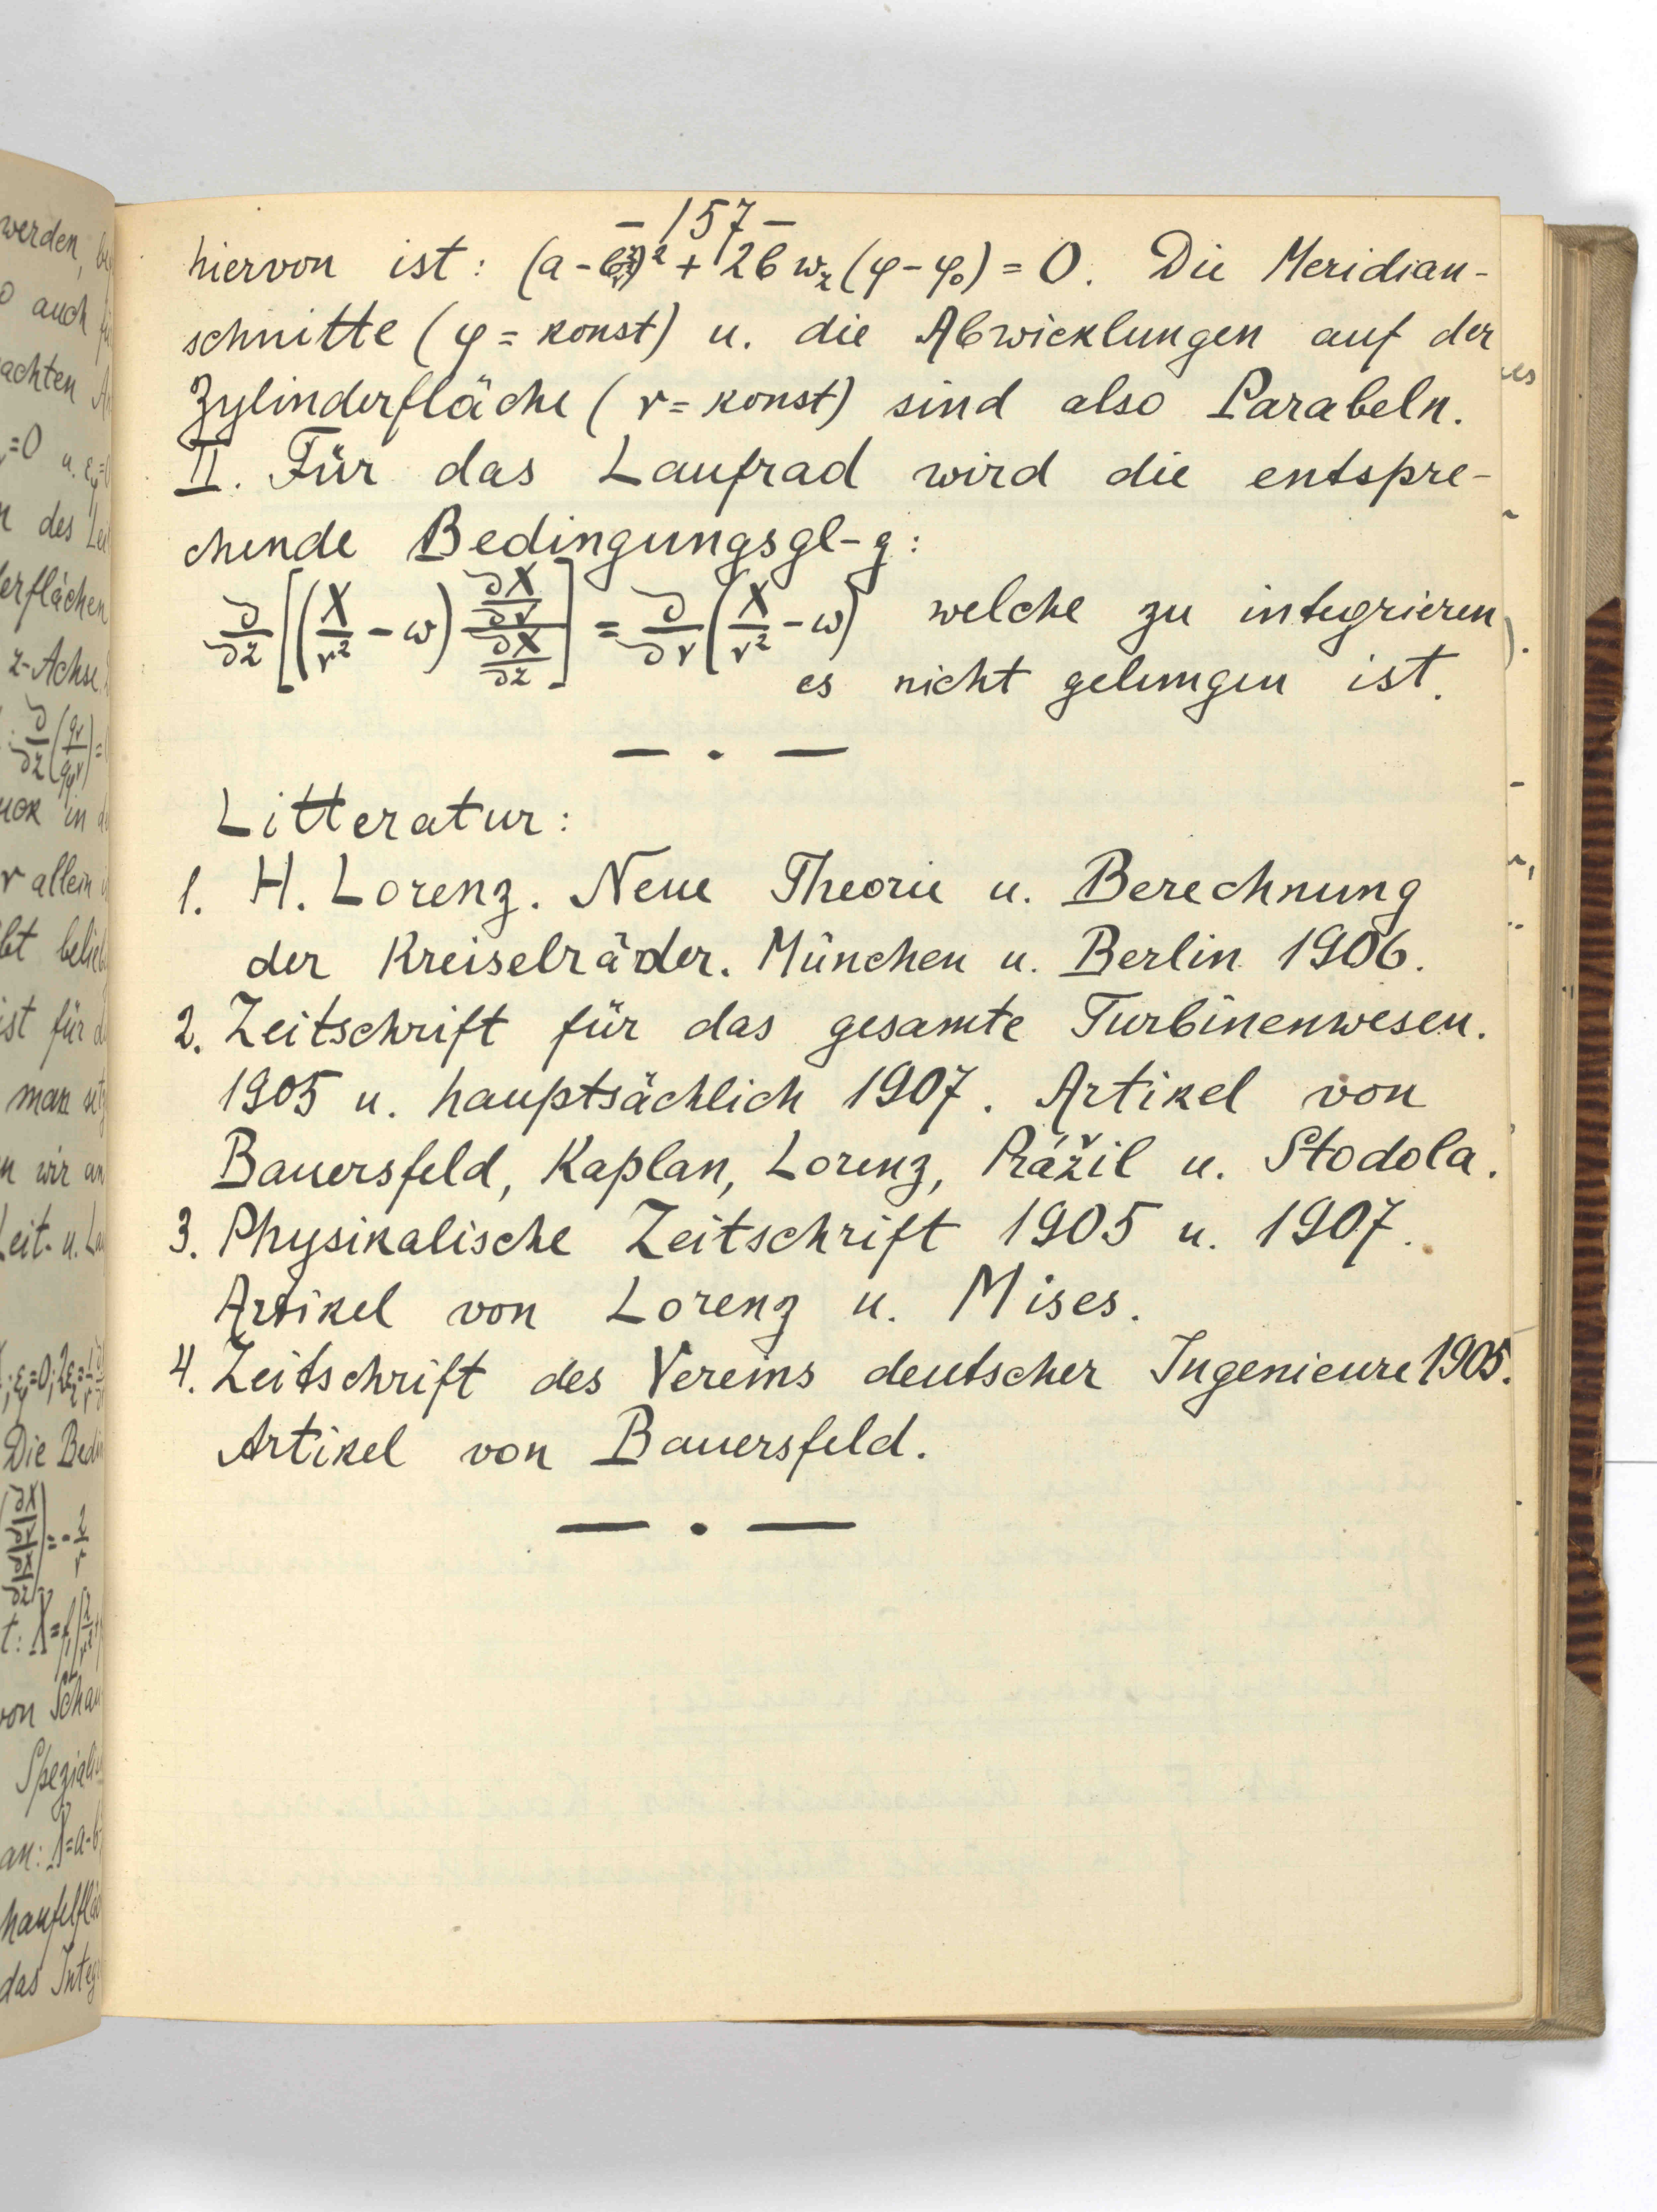 - 157 -
hiervon ist: (a - b z/r²)² + 2b w_z (φ - φ₀) = 0. Die Meridian-
schnitte (φ = konst) u. die Abwicklungen auf der
Zylinderfläche (r = konst) sind also Parabeln.
II. Für das Laufrad wird die entspre-
chende Bedingungsgl-g:
∂/∂z [(X/r² - ω) (∂X/∂r)/(∂X/∂z)] = ∂/∂r (X/r² - ω) welche zu integrieren
es nicht gelungen ist.
— . —
Litteratur:
1. H. Lorenz. Neue Theorie u. Berechnung
der Kreiselräder. München u. Berlin 1906.
2. Zeitschrift für das gesamte Turbinenwesen.
1905 u. hauptsächlich 1907. Artikel von
Bauersfeld, Kaplan, Lorenz, Prášil u. Stodola.
3. Physikalische Zeitschrift 1905 u. 1907.
Artikel von Lorenz u. Mises.
4. Zeitschrift des Vereins deutscher Ingenieure 1905.
Artikel von Bauersfeld.
— . —
werden,
auch
achten
=0 u.
des
erflächen
z-Achse
in
r allein
ist für
man
wir an
Leit- u.
Die
von
an: X=a-b
das